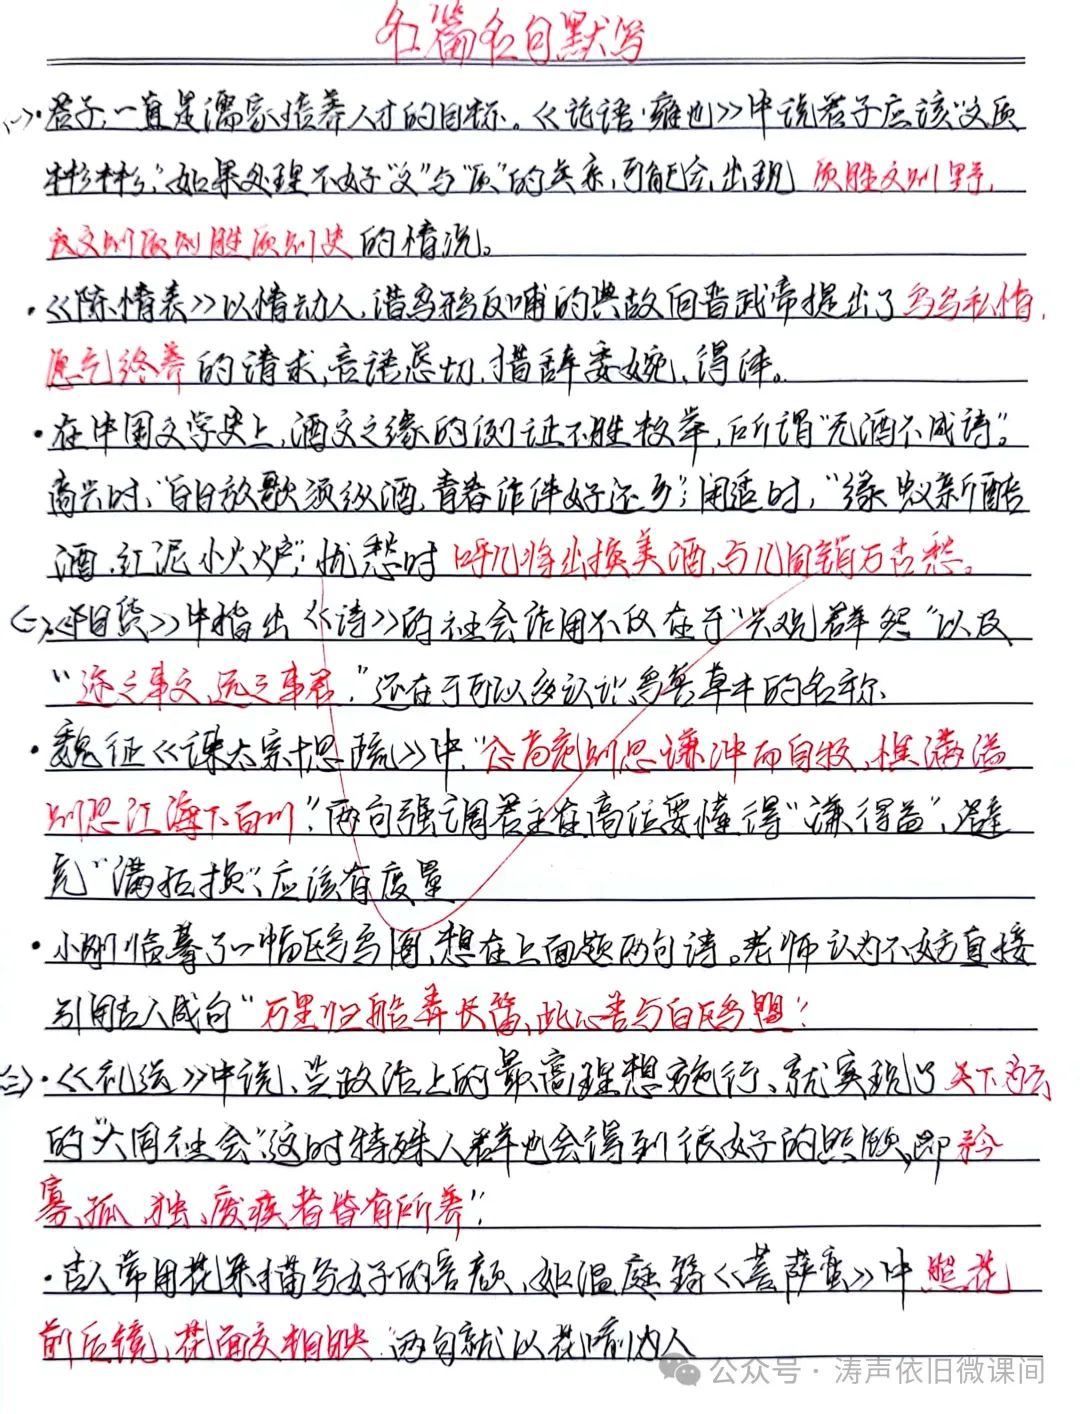 名篇名句默写
(一)·君子,一直是儒家培养人才的目标。《论语·雍也》中说君子应该“文质
彬彬”,如果处理不好“文”与“质”的关系,可能会出现 质胜文则野,
文胜质则史的情况。
·《陈情表》以情动人,借乌鸦反哺的典故向晋武帝提出了乌鸟私情,
愿乞终养的请求,言语恳切,措辞委婉、得体。
·在中国文学史上,酒文之缘的例证不胜枚举,所谓“无酒不成诗”。
高兴时,“白日放歌须纵酒,青春作伴好还乡”;闲适时,“绿蚁新醅
酒,红泥小火炉”;忧愁时 呼儿将出换美酒,与儿同销万古愁。
(二)·《阳货》中指出《诗》的社会作用不仅在于“兴观群怨”以及
“迩之事父,远之事君,”还在于可以多认识鸟兽草木的名称
·魏征《谏太宗十思疏》中,“念高危则思谦冲而自牧,惧满溢
则思江海下百川”,两句强调君主在高位要懂得“谦得益”,避
免“满招损”,应该有度量
·小刚临摹了一幅鸥鸟图,想在上面题两句诗。老师认为不妨直接
引用古人成句“万里归船弄长笛,此心吾与白鸥盟”
(三)·《礼运》中说,当政治上的最高理想施行,就实现了天下为公
的“大同社会”,这时特殊人群也会得到很好的照顾,即矜
寡、孤、独、废疾者皆有所养”;
·古人常用花来描写女子的容颜,如温庭筠《菩萨蛮》中 照花
前后镜,花面交相映 两句就以花喻人
公众号·涛声依旧微课间